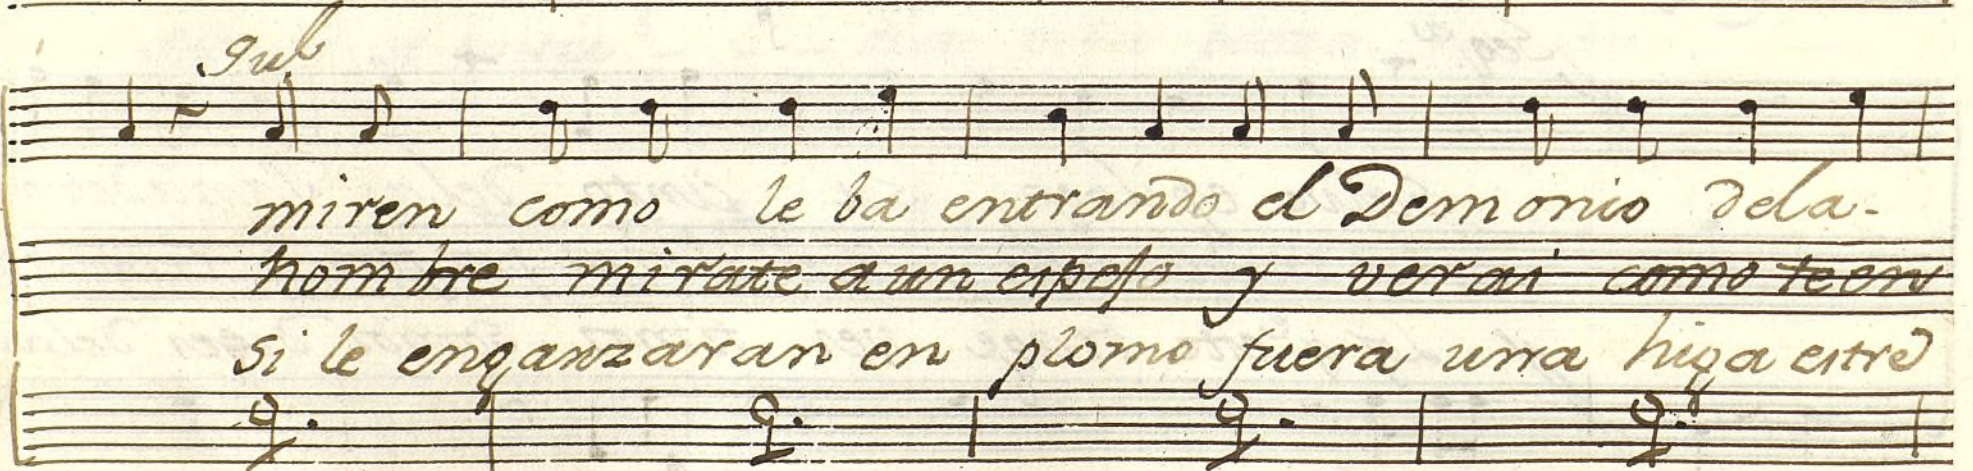 Gul
miren como le ba entrando el Demonio dela-
hombre mirate a un espejo y verai como te en
si le enganzaran en plomo fuera una higa estre